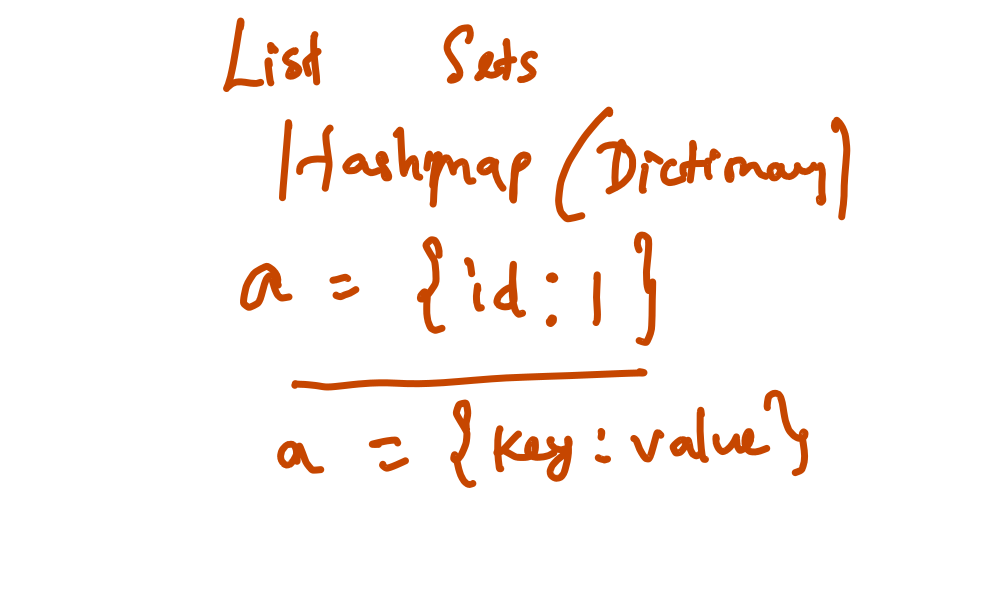 List Sets
Hashmap (Dictionary)
a = {id : 1}
a = {key : value}